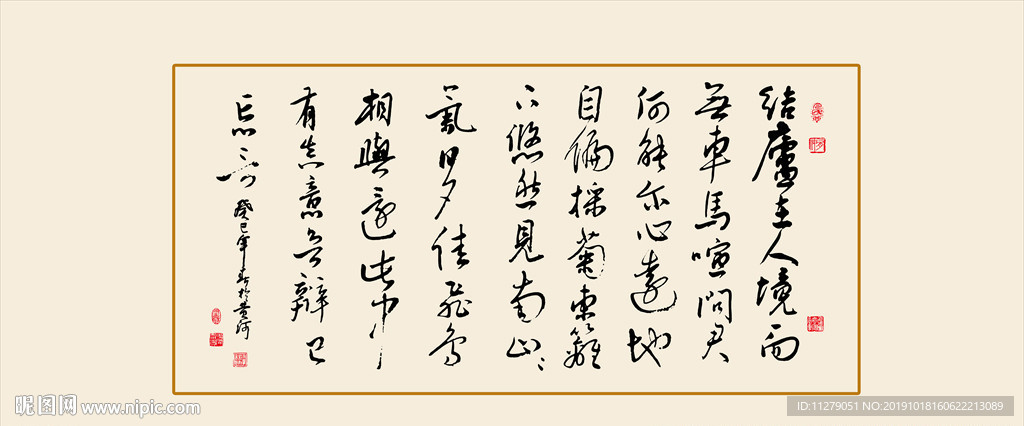 结廬在人境而
無車馬喧問君
何能尔心遠地
自偏採菊東籬
下悠然見南山々
氣日夕佳飛鳥
相與還此中
有真意欲辯已
忘言
癸巳年春於黄河
昵图网 www.nipic.com
ID:11279051 NO:20191018160622213089